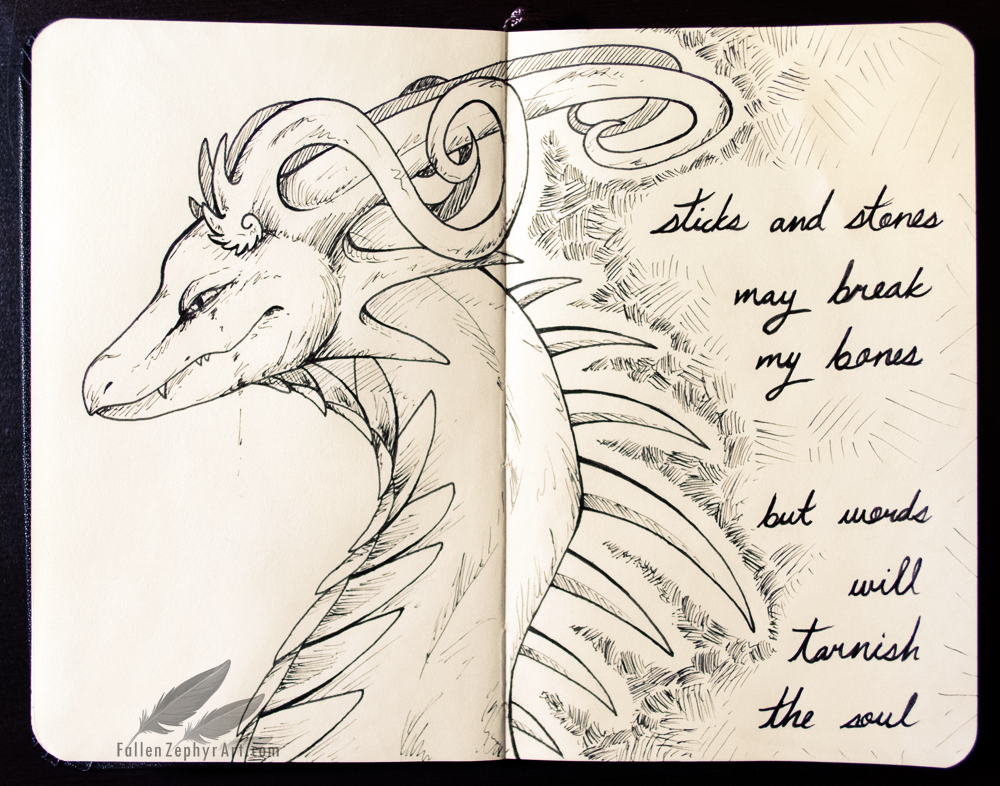 sticks and stones
may break
my bones
but words
will
tarnish
the soul
FallenZephyrArt.com